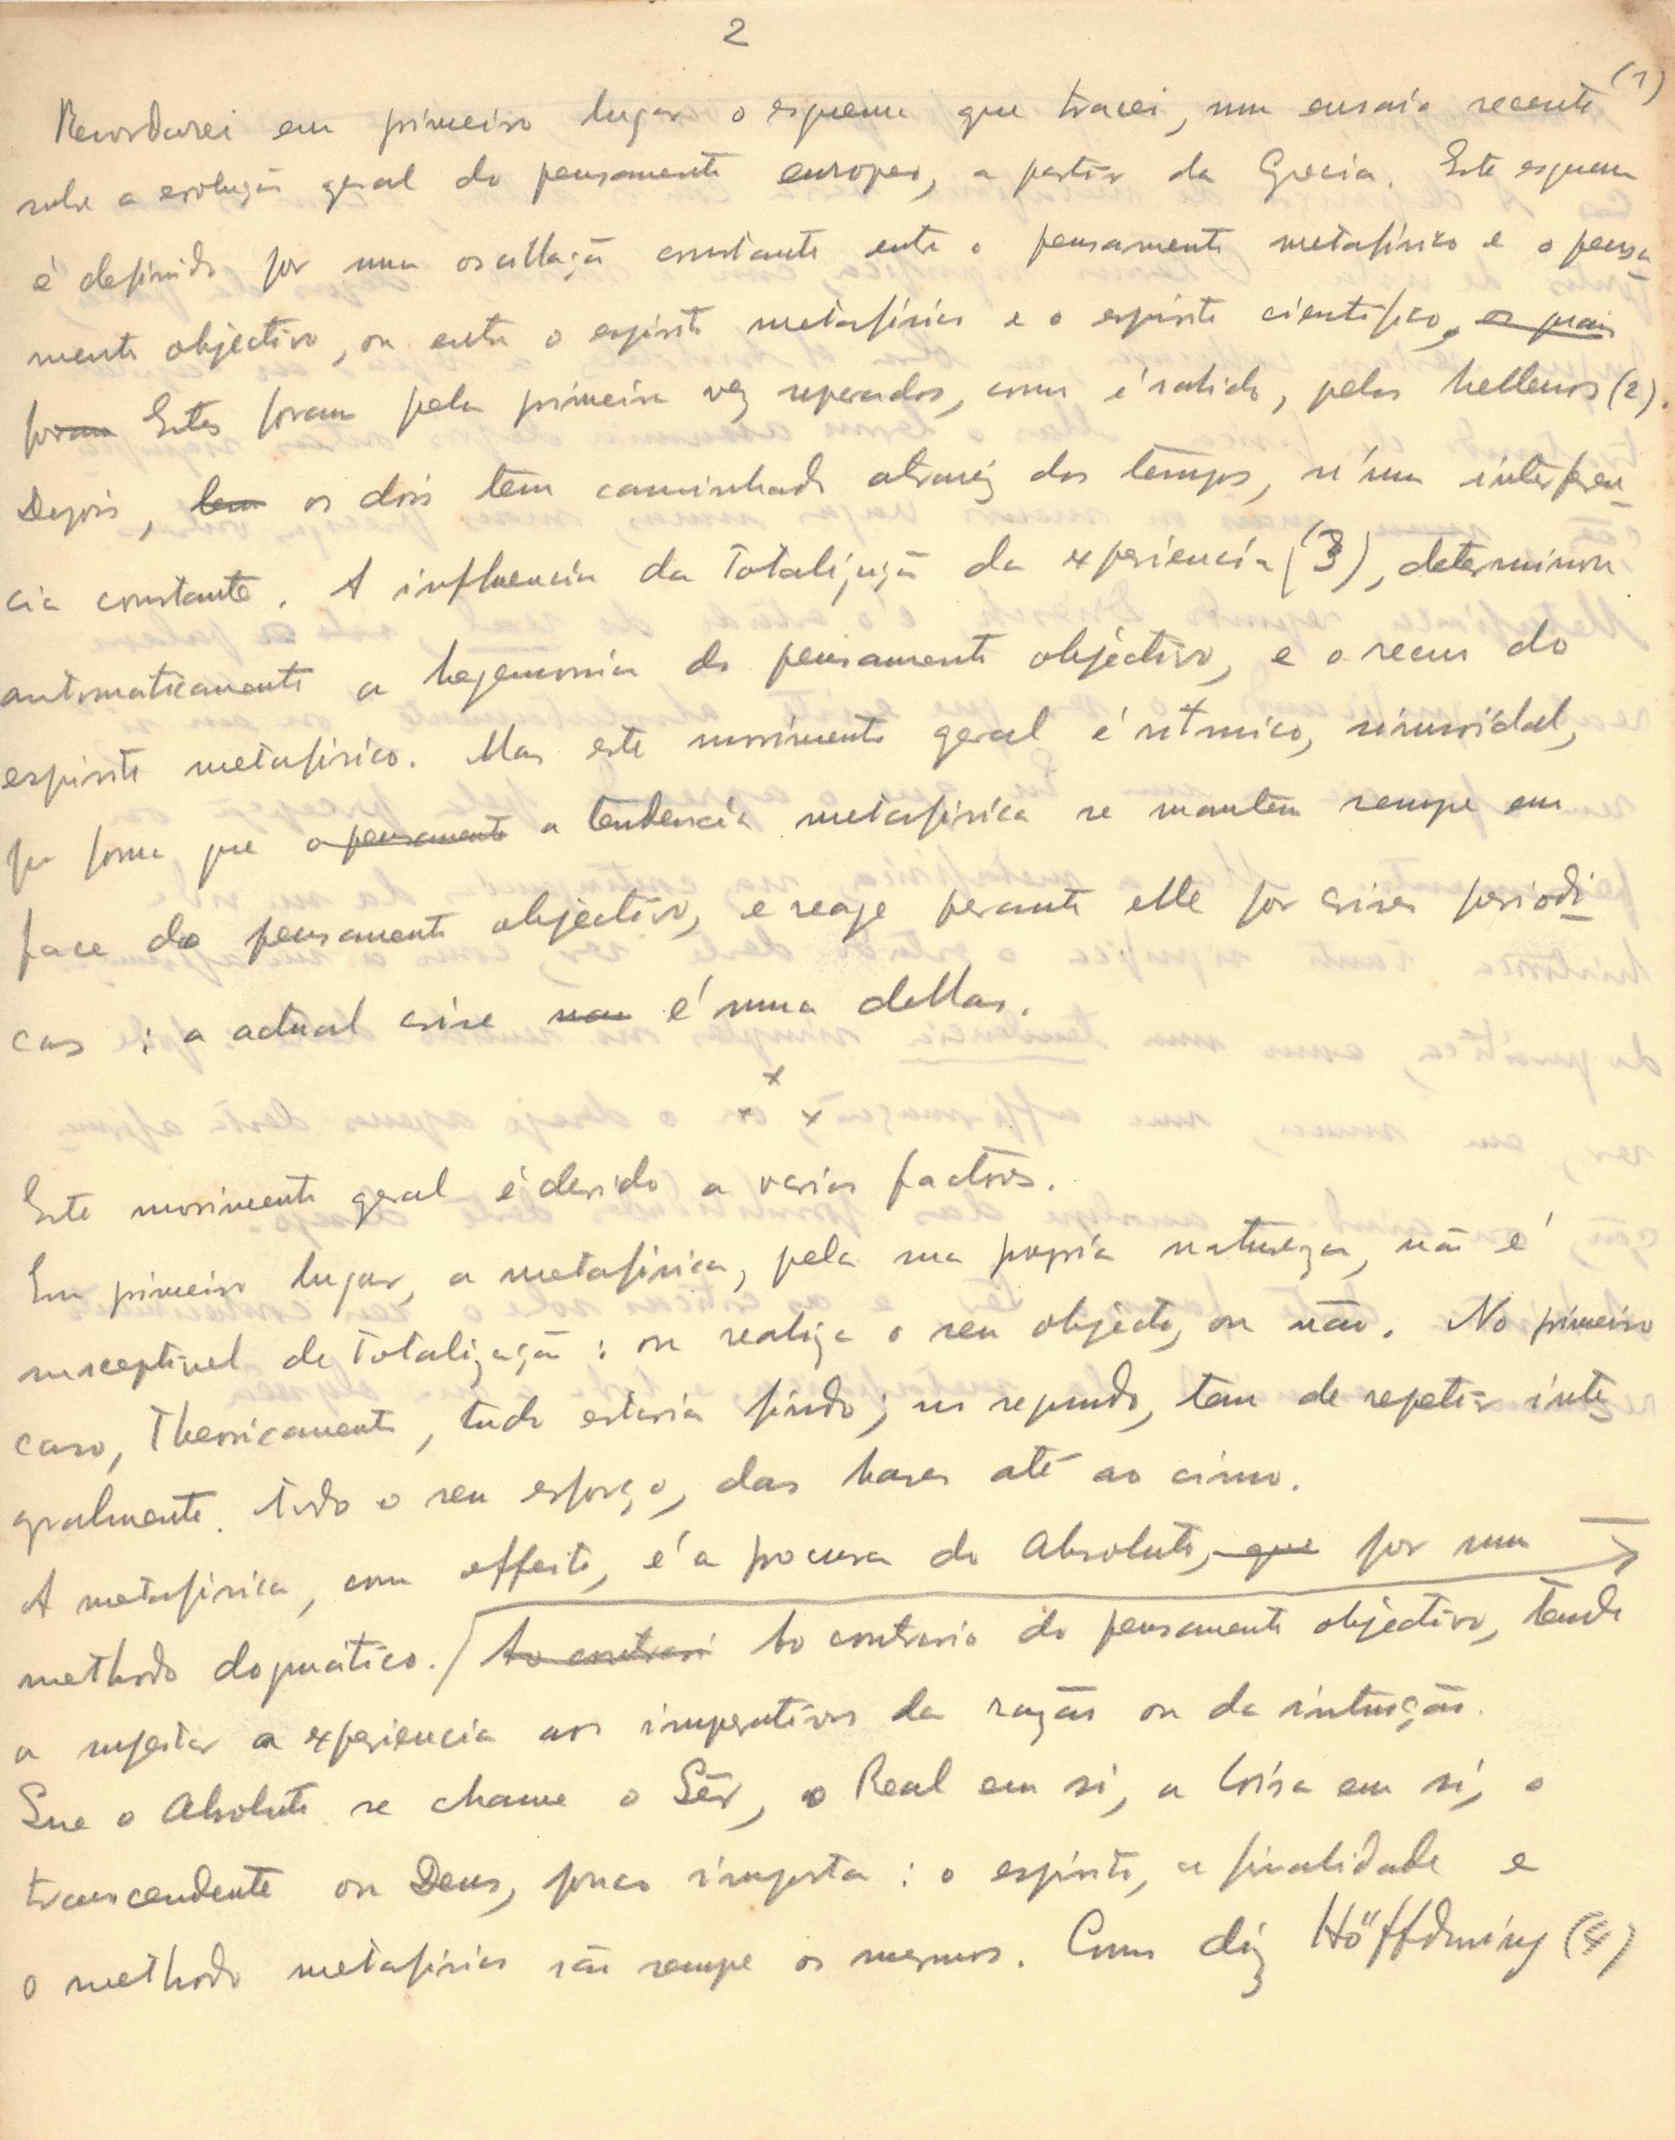 2
Recordarei em primeiro lugar o esquema que tracei, num ensaio recente (1)
sobre a evolução geral do pensamento europeo, a partir da Grecia. Este esquema
é definido por uma oscillação constante entre o pensamento metafisico e o pensa-
mento objectivo, ou entre o espirito metafisico e o espirito cientifico, e quais
foram Estes foram pela primeira vez separados, como é sabido, pelos hellenos (2).
Depois, tem os dois tem caminhado atravéz dos tempos, n'uma interferen-
cia constante. A influencia da Totalização da experiencia (3), determinou
automaticamente a hegemonia do pensamento objectivo, e o recuo do
espirito metafisico. Mas este movimento geral é ritmico, sinusoidal,
por forma que o pensamento a tendencia metafisica se mantem sempre em
face do pensamento objectivo, e reage perante elle por crises periodi-
cas : a actual crise nao é uma dellas.
x x x
Este movimento geral é devido a varios factores.
Em primeiro lugar, a metafisica, pela sua propria natureza, não é
susceptivel de Totalização : ou realiza o seu objecto, ou não. No primeiro
caso, Theoricamente, tudo estaria findo; no segundo, tem de repetir inte-
gralmente todo o seu esforço, das bases até ao cimo.
A metafisica, com effeito, é a procura do Absoluto, que por um
methodo dogmático. / Ao contrari Ao contrario do pensamento objectivo, tende
a sujeitar a experiencia aos imperativos da razão ou da intuição.
Que o Absoluto se chame o Sêr, o Real em si, a Coisa em si, o
transcendente ou Deus, pouco importa : o espirito, a finalidade e
o methodo metafisicos são sempre os mesmos. Como diz Höffdming (4)